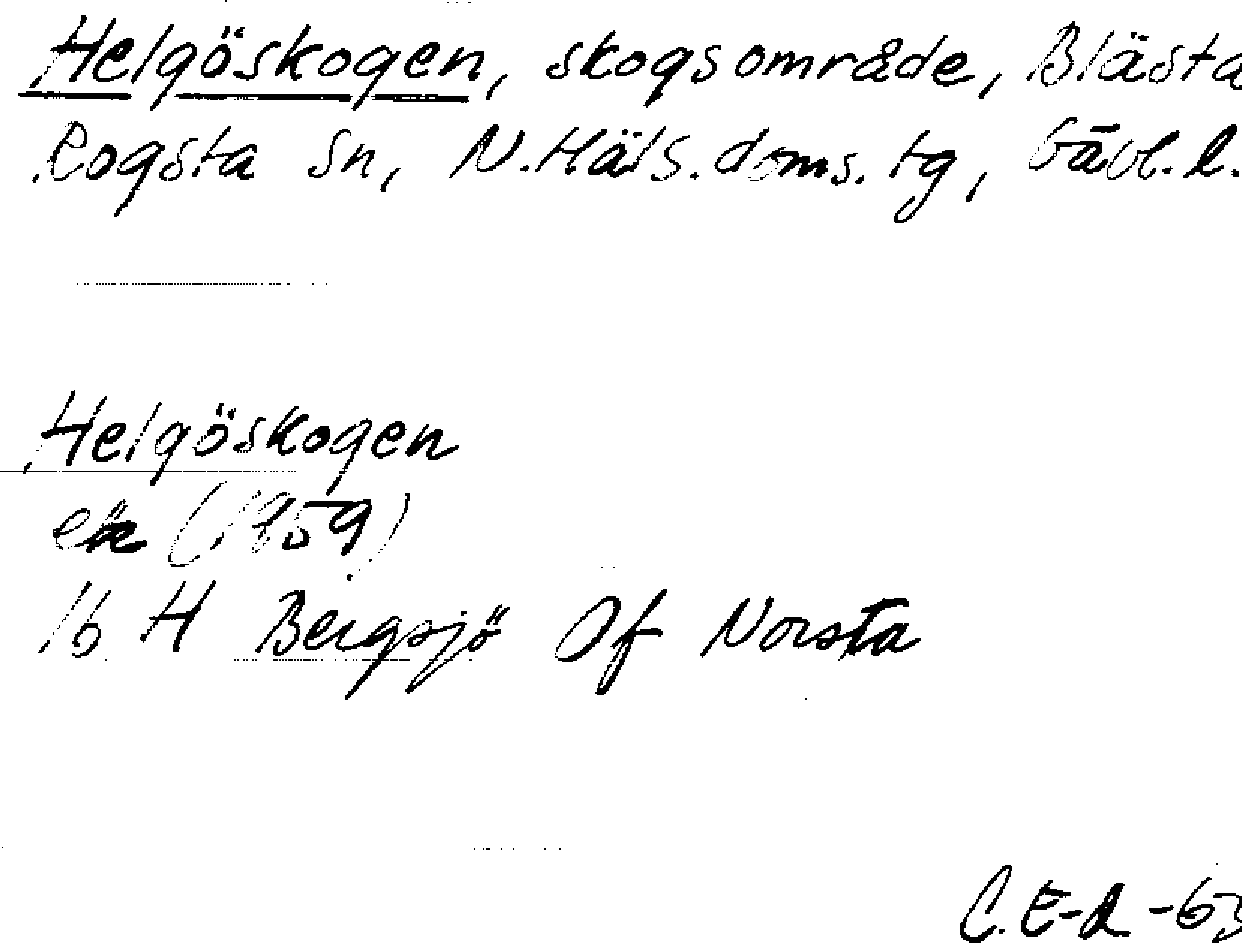 Helgöskogen, skogsområde, Blästa
Rogsta sn, N. Häls. doms. tg, Gävl. l.
Helgöskogen
ek (1959)
16 H Bergsjö Of Norsta
C. E-d -63